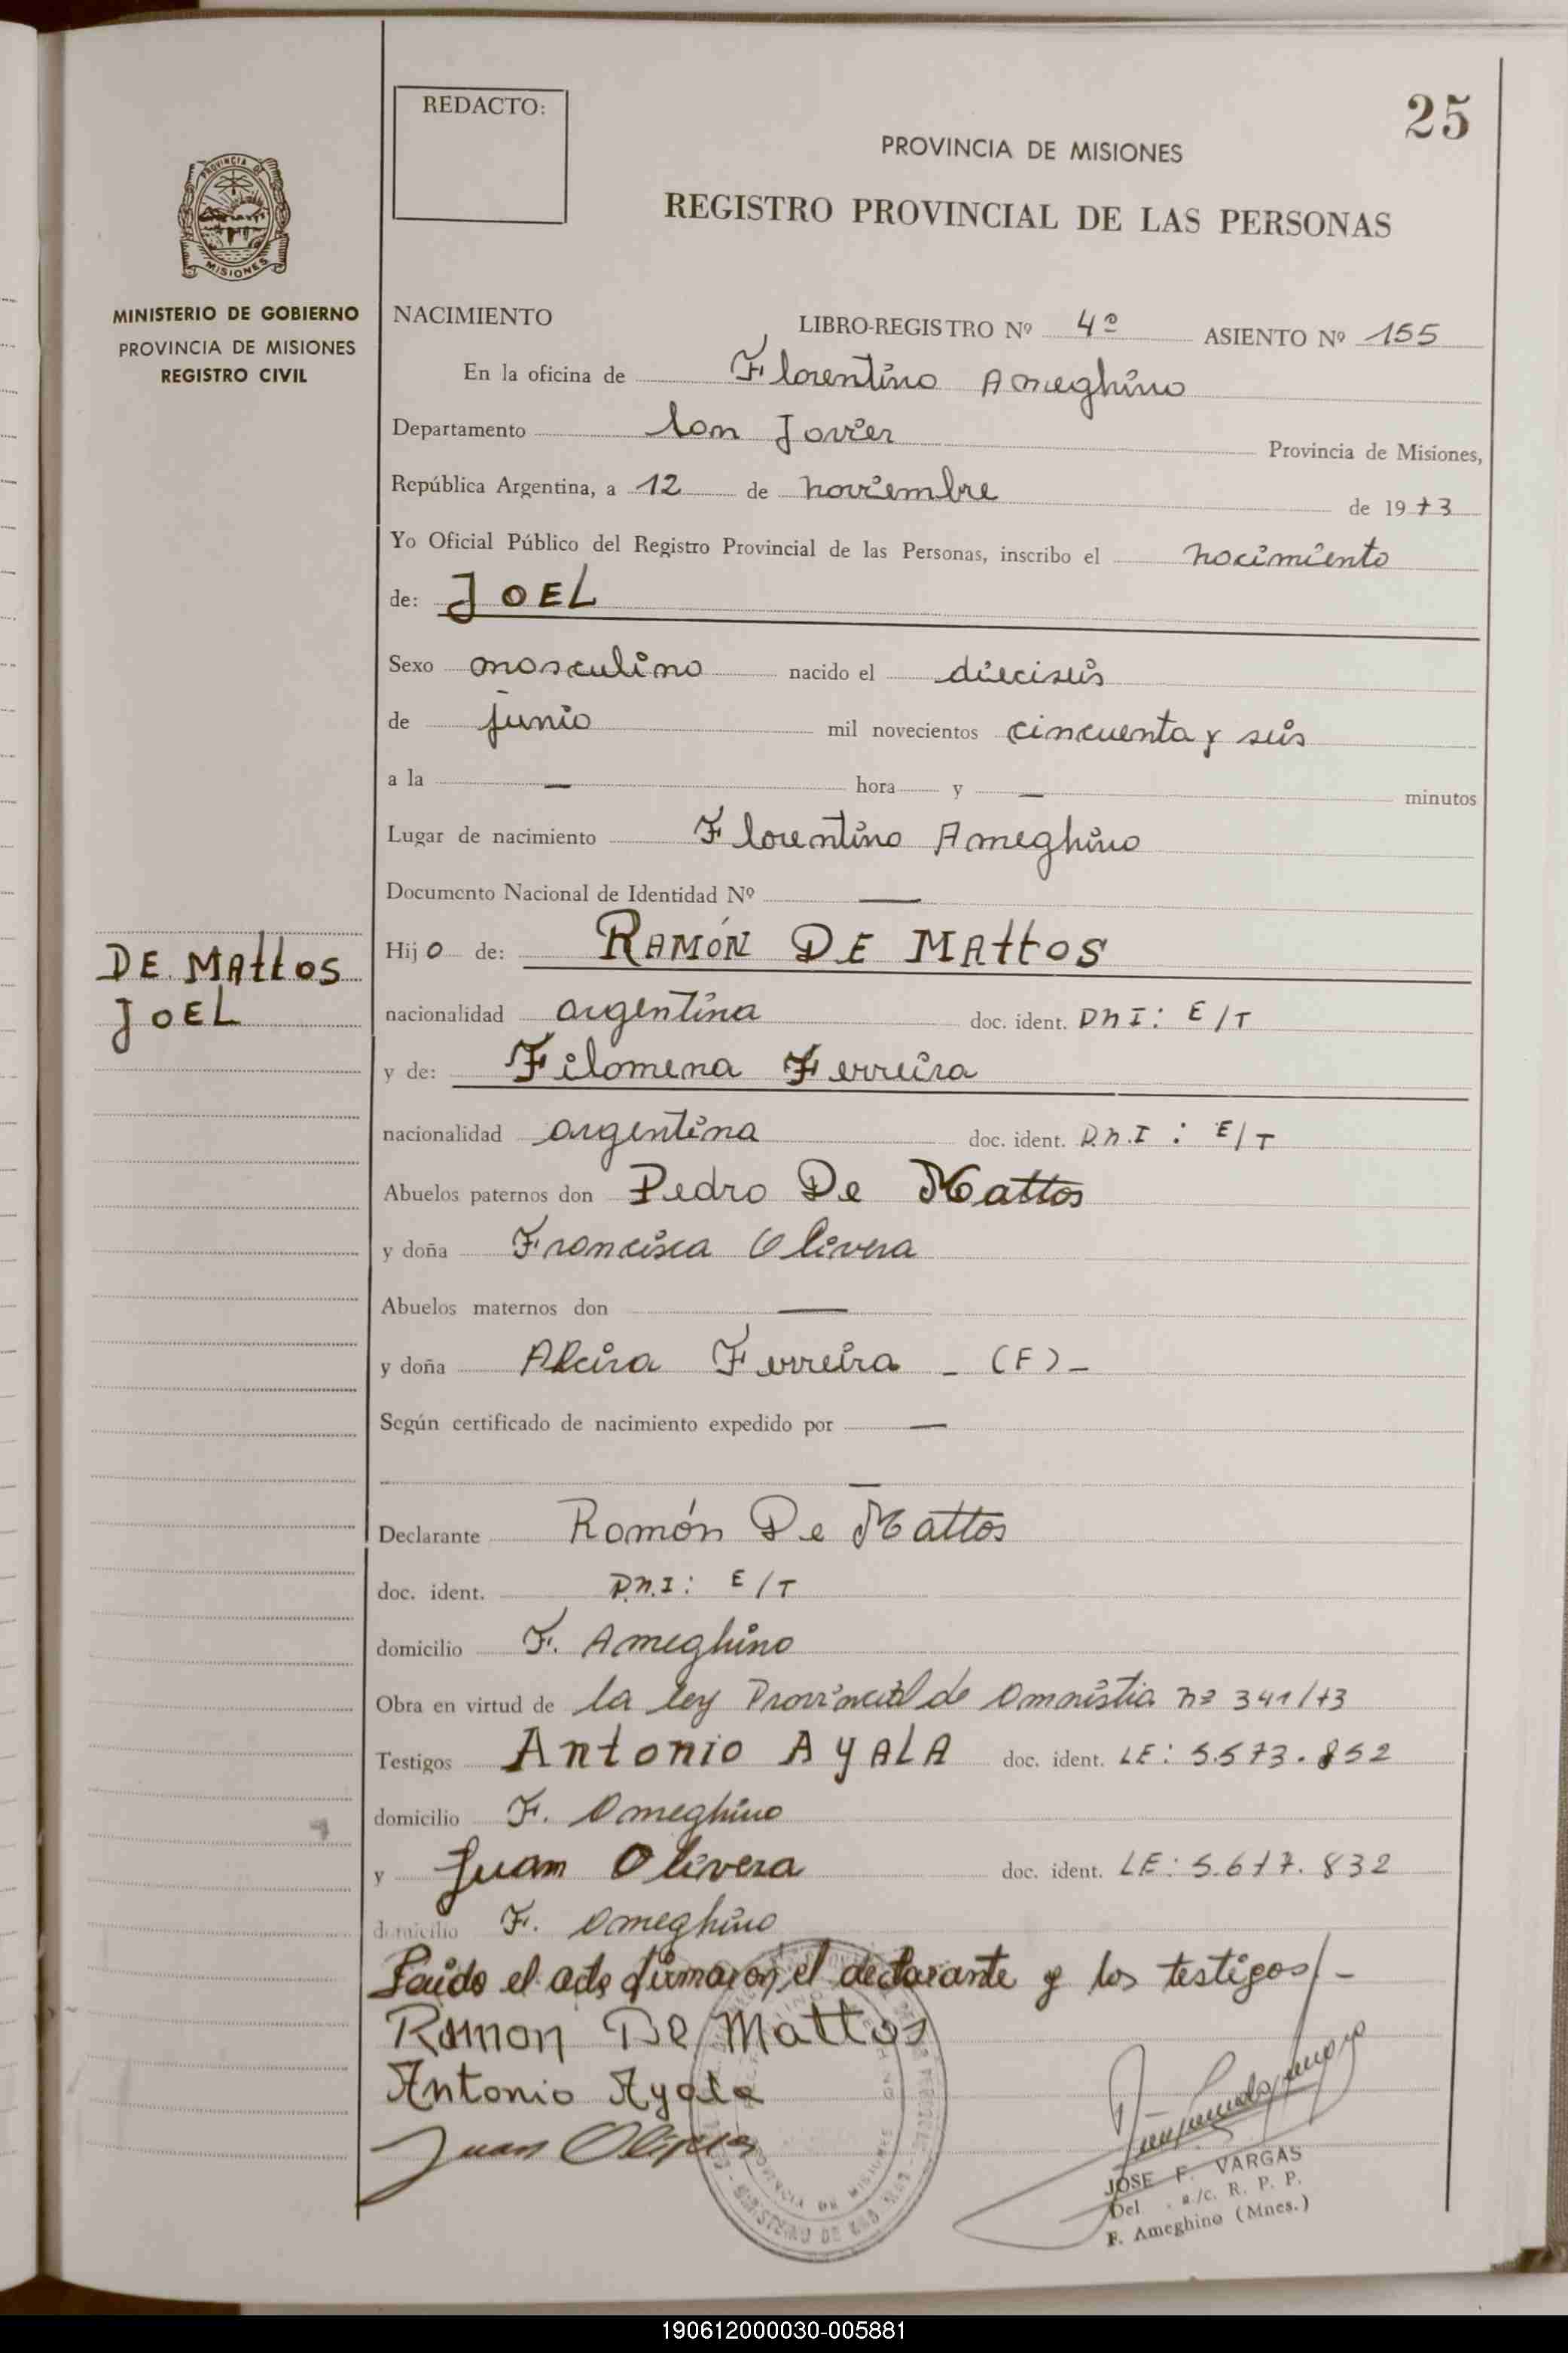 25
REDACTO:
PROVINCIA DE MISIONES
REGISTRO PROVINCIAL DE LAS PERSONAS
PROVINCIA DE
MISIONES
MINISTERIO DE GOBIERNO
PROVINCIA DE MISIONES
REGISTRO CIVIL
NACIMIENTO LIBRO-REGISTRO Nº 4º ASIENTO Nº 155
En la oficina de Florentino Ameghino
Departamento San Javier Provincia de Misiones,
República Argentina, a 12 de noviembre de 1973
Yo Oficial Público del Registro Provincial de las Personas, inscribo el nacimiento
de: JOEL
Sexo masculino nacido el dieciseis
de junio mil novecientos cincuenta y seis
a la — hora y — minutos
Lugar de nacimiento Florentino Ameghino
Documento Nacional de Identidad Nº —
DE MAttOS
JOEL
Hijo de: RAMÓN DE MAttOS
nacionalidad argentina doc. ident. DNI: E/T
y de: Filomena Ferreira
nacionalidad argentina doc. ident. D.N.I : E/T
Abuelos paternos don Pedro De Mattos
y doña Francisca Olivera
Abuelos maternos don —
y doña Alcira Ferreira - (F) -
Según certificado de nacimiento expedido por —
—
Declarante Ramón De Mattos
doc. ident. D.N.I: E/T
domicilio F. Ameghino
Obra en virtud de la ley Provincial de Amnistia nº 341/73
Testigos Antonio AyALA doc. ident. LE: 5.573.852
domicilio F. Ameghino
y Juan Olivera doc. ident. LE: 5.617.832
domicilio F. Ameghino
Leido el acta firmaron, el declarante y los testigos/-
Ramon De Mattos
Antonio Ayala
Juan Olivera
JOSE F. VARGAS
Del. a/c. R. P. P.
F. Ameghino (Mnes.)
PROVINCIA DE MISIONES
190612000030-005881